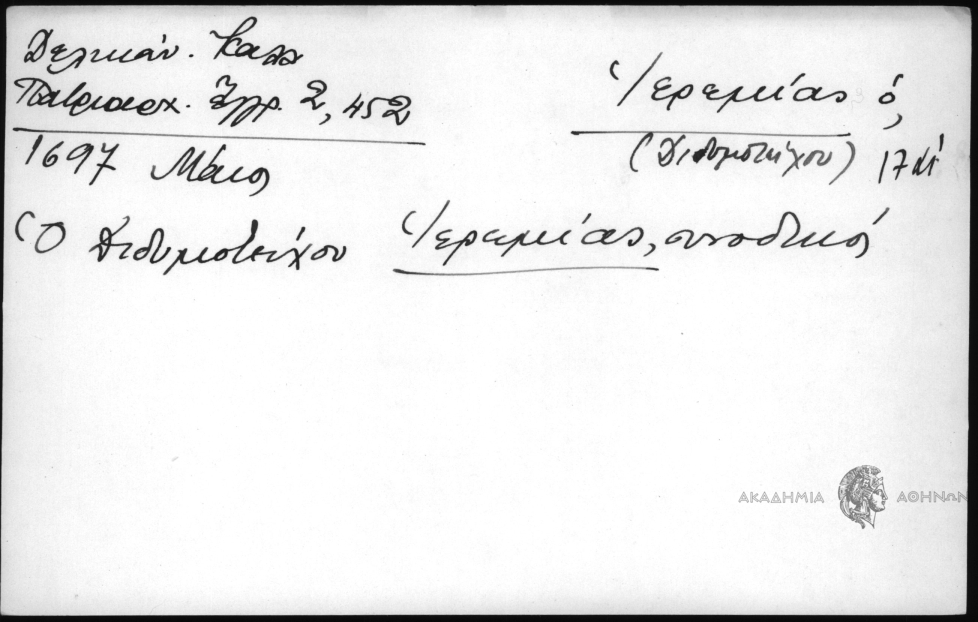 Δελικάν. Καλλ
Πατριαρχ. Ἔγγρ. 2, 452
Ἱερεμίας ὁ,
(Διδυμοτείχου) 17 αἰ
1697 Μάιος
Ὁ Διδυμοτείχου Ἱερεμίας, συνοδικός
ΑΚΑΔΗΜΙΑ ΑΘΗΝΩΝ